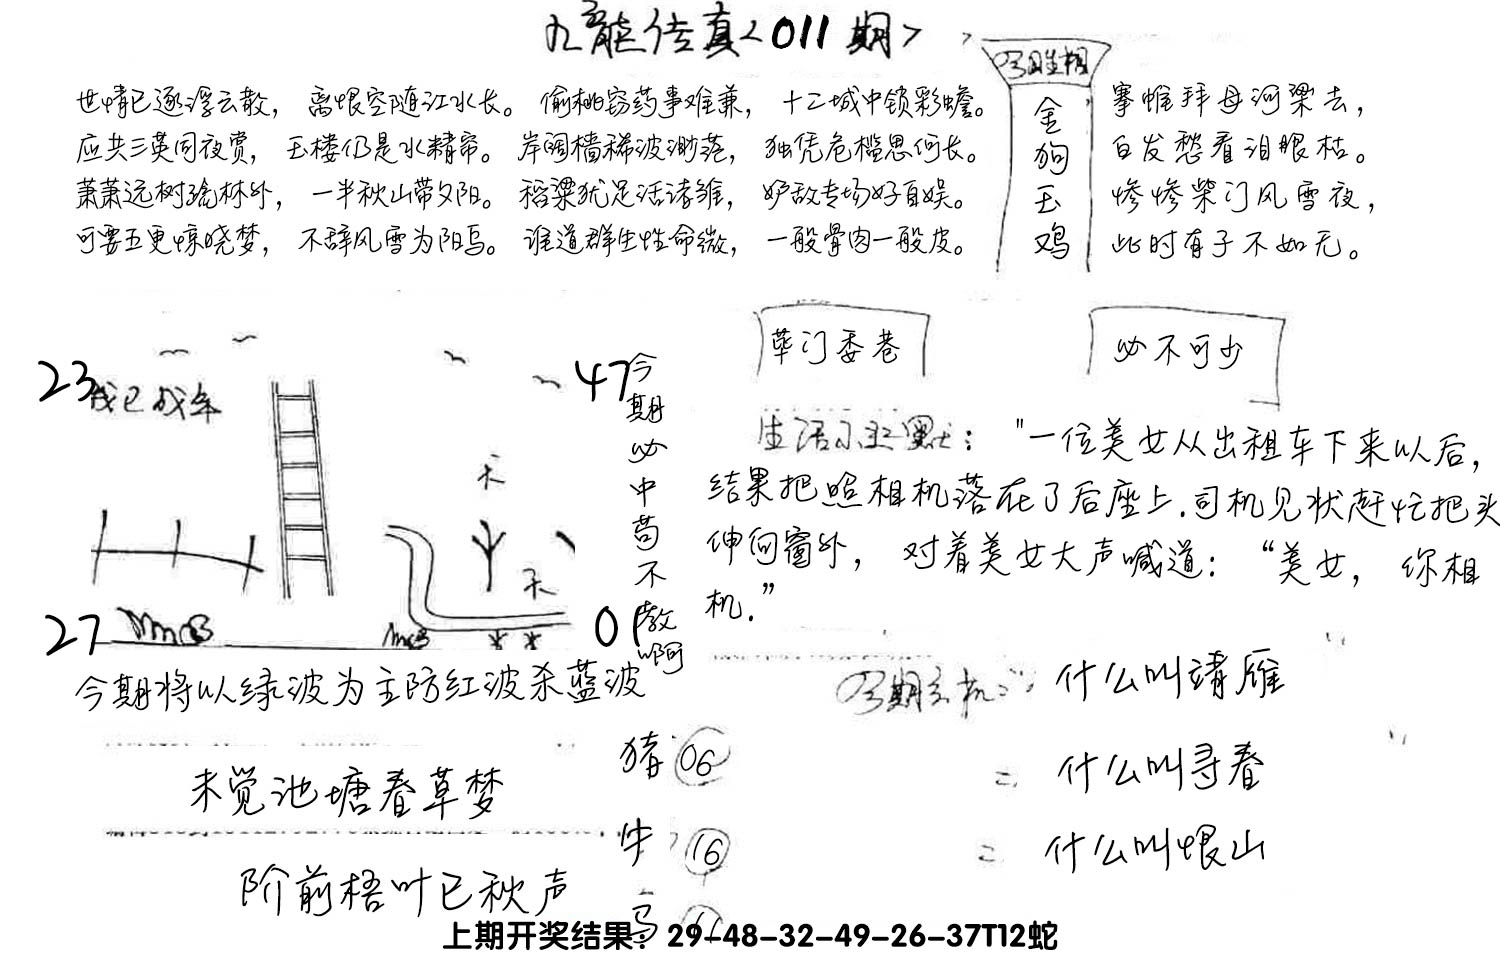 九龍传真<011期>
世情已逐浮云散，离恨空随江水长。偷桃窃药事难兼，十二城中锁彩蟾。
应共三英同夜赏，玉楼仍是水精帘。岸阔樯稀波渺茫，独凭危槛思何长。
萧萧远树疏林外，一半秋山带夕阳。稻粱犹足活诸雏，妒敌专场好自娱。
可要五更惊晓梦，不辞风雪为阳乌。谁道群生性命微，一般骨肉一般皮。
今期生相
金狗玉鸡
搴帷拜母河梁去，
白发愁看泪眼枯。
惨惨柴门风雪夜，
此时有子不如无。
23
47
27
01
天
天
今期必中苟不教啊
今期将以绿波为主防红波杀蓝波
未觉池塘春草梦
阶前梧叶已秋声
荜门委巷
必不可少
生活小幽默："一位美女从出租车下来以后，
结果把照相机落在了后座上.司机见状赶忙把头
伸向窗外，对着美女大声喊道：“美女，你相
机.”
今期玄机：什么叫靖雁
=什么叫寻春
=什么叫恨山
猪 06
牛 16
马 11
上期开奖结果：29-48-32-49-26-37T12蛇